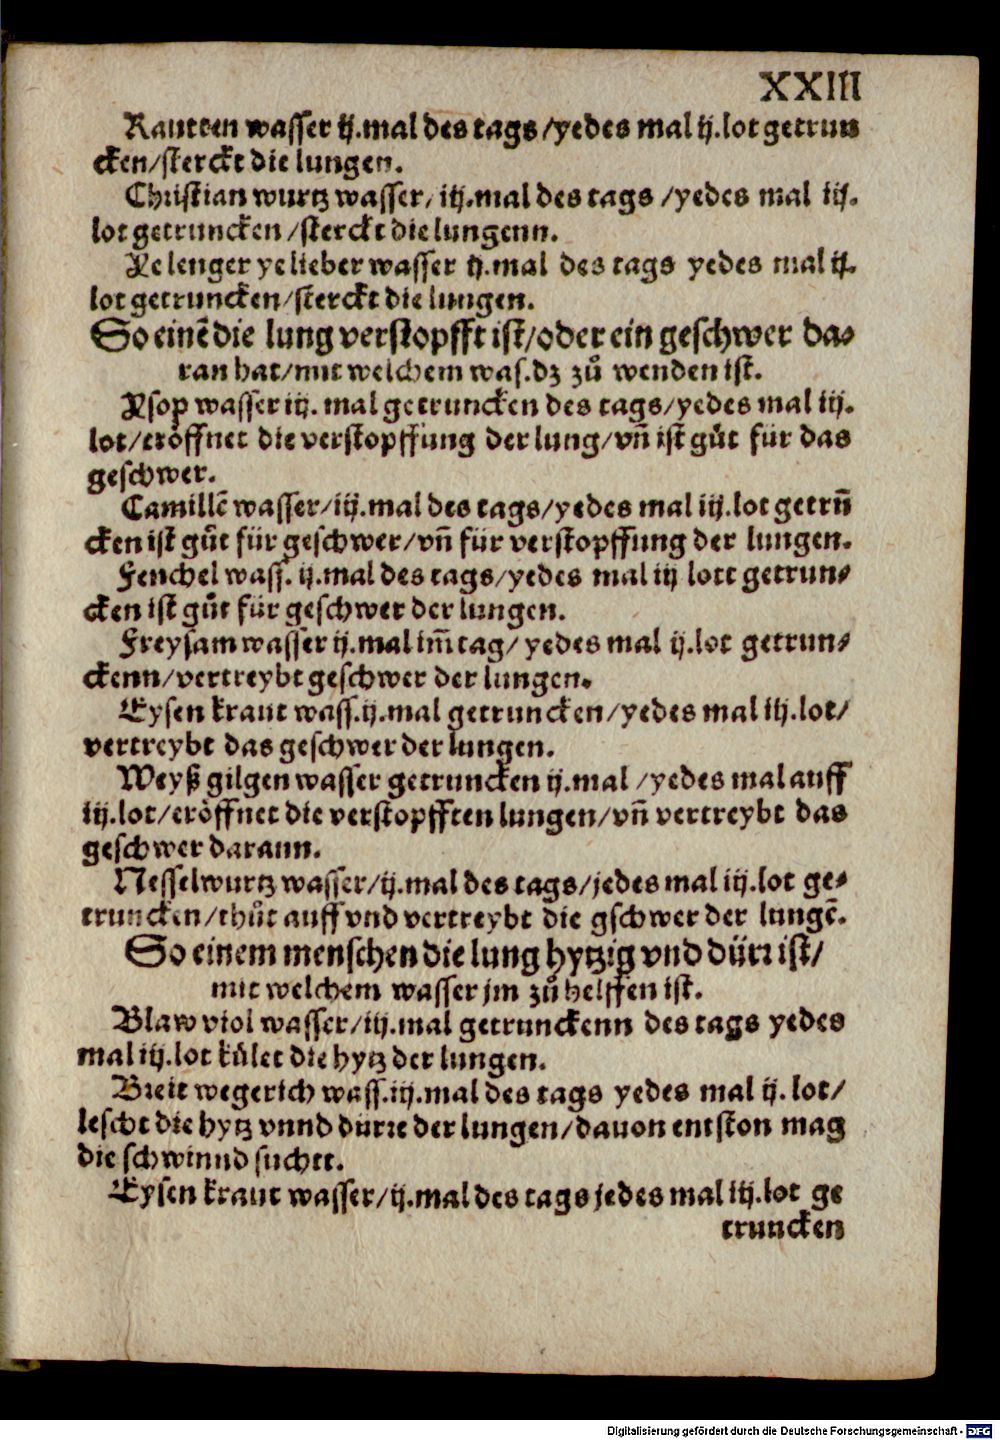 XXIII
Rautten wasser ij.mal des tags/yedes mal ij.lot getrun
cken/sterckt die lungen.
Christian wurtz wasser/iij.mal des tags/yedes mal iij.
lot getruncken/sterckt die lungenn.
Ye lenger ye lieber wasser ij.mal des tags yedes mal ij.
lot getruncken/sterckt die lungen.
So einē die lung verstopfft ist/oder ein geschwer da-
ran hat/mit welchem was.dz zů wenden ist.
Ysop wasser iij. mal getruncken des tags/yedes mal iij.
lot/eröffnet die verstopffung der lung/vñ ist gůt für das
geschwer.
Camillē wasser/iij.mal des tags/yedes mal iij.lot getrũ
cken ist gůt für geschwer/vñ für verstopffung der lungen.
Fenchel wass. ij.mal des tags/yedes mal iij lott getrun-
cken ist gůt für geschwer der lungen.
Freysam wasser ij.mal im̃ tag/ yedes mal ij.lot getrun-
ckenn/vertreybt geschwer der lungen.
Eysen kraut wass.ij.mal getruncken/yedes mal iij.lot/
vertreybt das geschwer der lungen.
Weyß gilgen wasser getruncken ij.mal/yedes mal auff
iij.lot/eröffnet die verstopfften lungen/vñ vertreybt das
geschwer darann.
Nesselwurtz wasser/ij.mal des tags/jedes mal iij.lot ge-
truncken/thůt auff vnd vertreybt die gschwer der lungē.
So einem menschen die lung hytzig vnd dürr ist/
mit welchem wasser jm zů helffen ist.
Blaw viol wasser/iij.mal getrunckenn des tags yedes
mal iij.lot kůlet die hytz der lungen.
Breit wegerich wass.iij.mal des tags yedes mal ij. lot/
lescht die hytz vnnd dürre der lungen/dauon entston mag
die schwinnd suchtt.
Eysen kraut wasser/ij.mal des tags jedes mal iij.lot ge
truncken
Digitalisierung gefördert durch die Deutsche Forschungsgemeinschaft - DFG